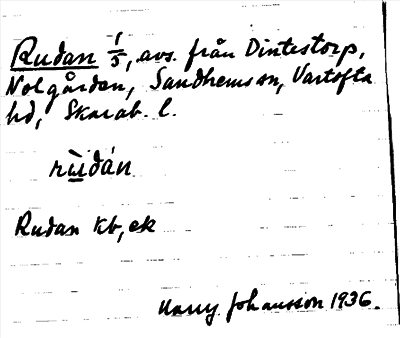 Rudan 1/5, avs. från Dintestorp,
Nolgården, Sandhems sn, Vartofta
hd, Skarab. l.
rùdán
Rudan Kb, ek
Harry Johansson 1936.